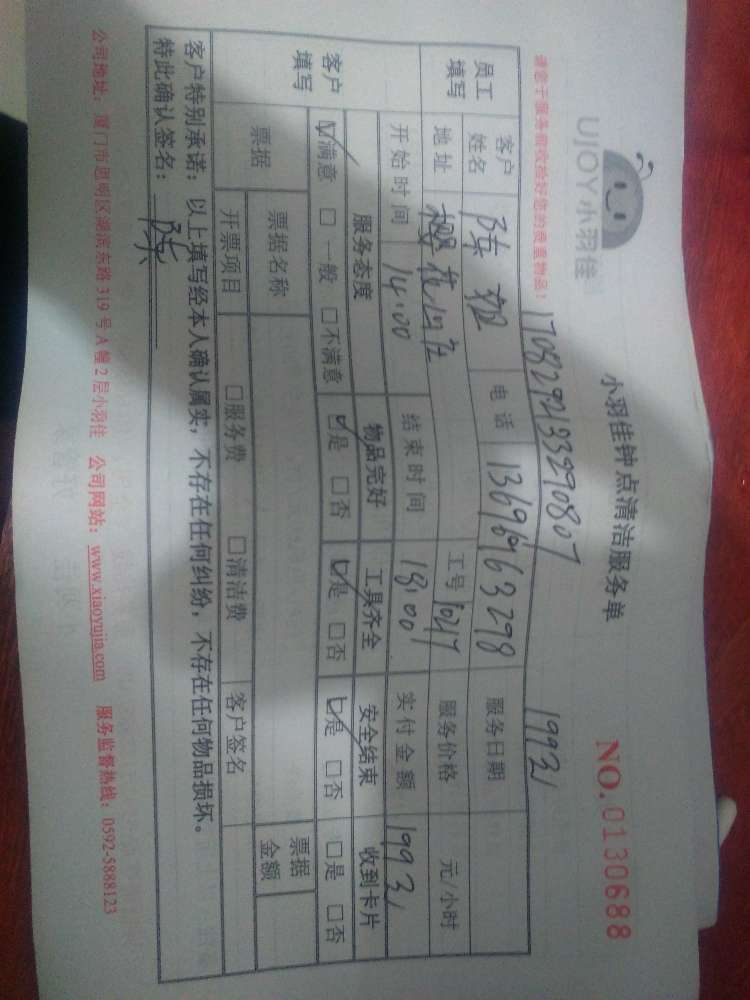 UJOY小羽佳
小羽佳钟点清洁服务单
NO.0130688
请您于服务前收捡好您的贵重物品!
17082921339290807
1993)
员工填写 客户姓名 陈 电话 13696963298 服务日期
地址 樱花 工号 10217 服务价格 元/小时
开始时间 14:00 结束时间 18:00 实付金额 1993)
客户填写 服务态度 物品完好 工具齐全 安全结束 收到卡片
☑满意 □一般 □不满意 ☑是 □否 ☑是 □否 ☑是 □否 □是 □否
票据 票据名称 票据金额
开票项目 □服务费 □清洁费 客户签名
客户特别承诺:以上填写经本人确认属实,不存在任何纠纷,不存在任何物品损坏。
特此确认签名:陈
公司地址:厦门市思明区湖滨东路319号A幢2层小羽佳 公司网站:www.xiaoyujia.com 服务监督热线:0592-5888123